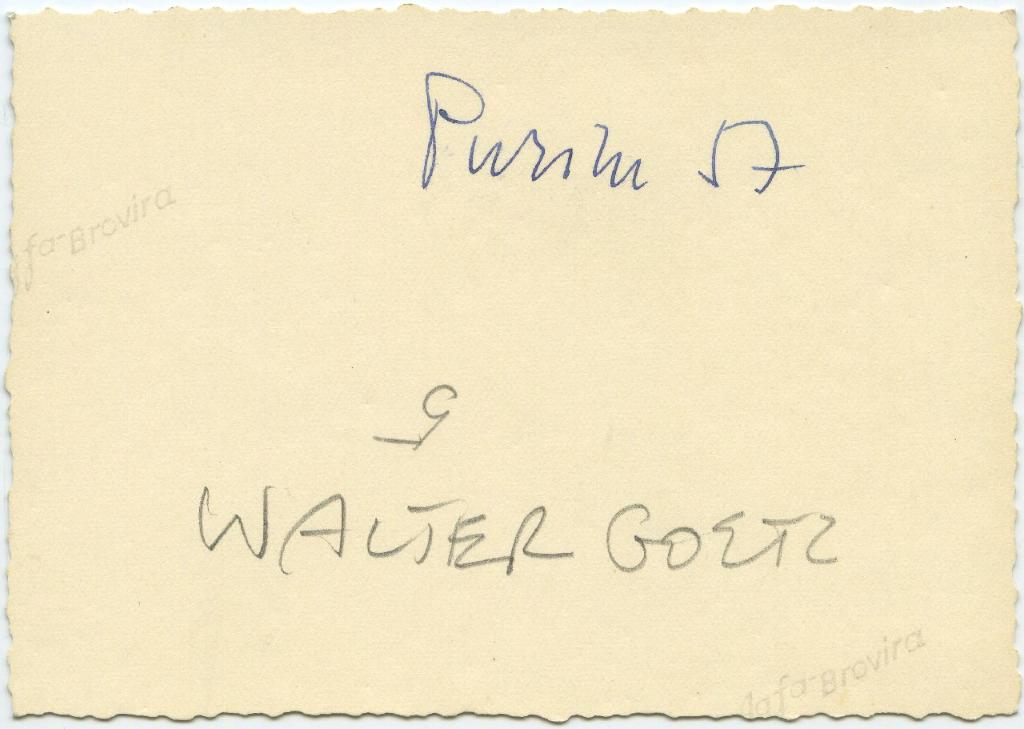 Purim 57
fa-Brovira
WALTER GOETZ
Agfa-Brovira